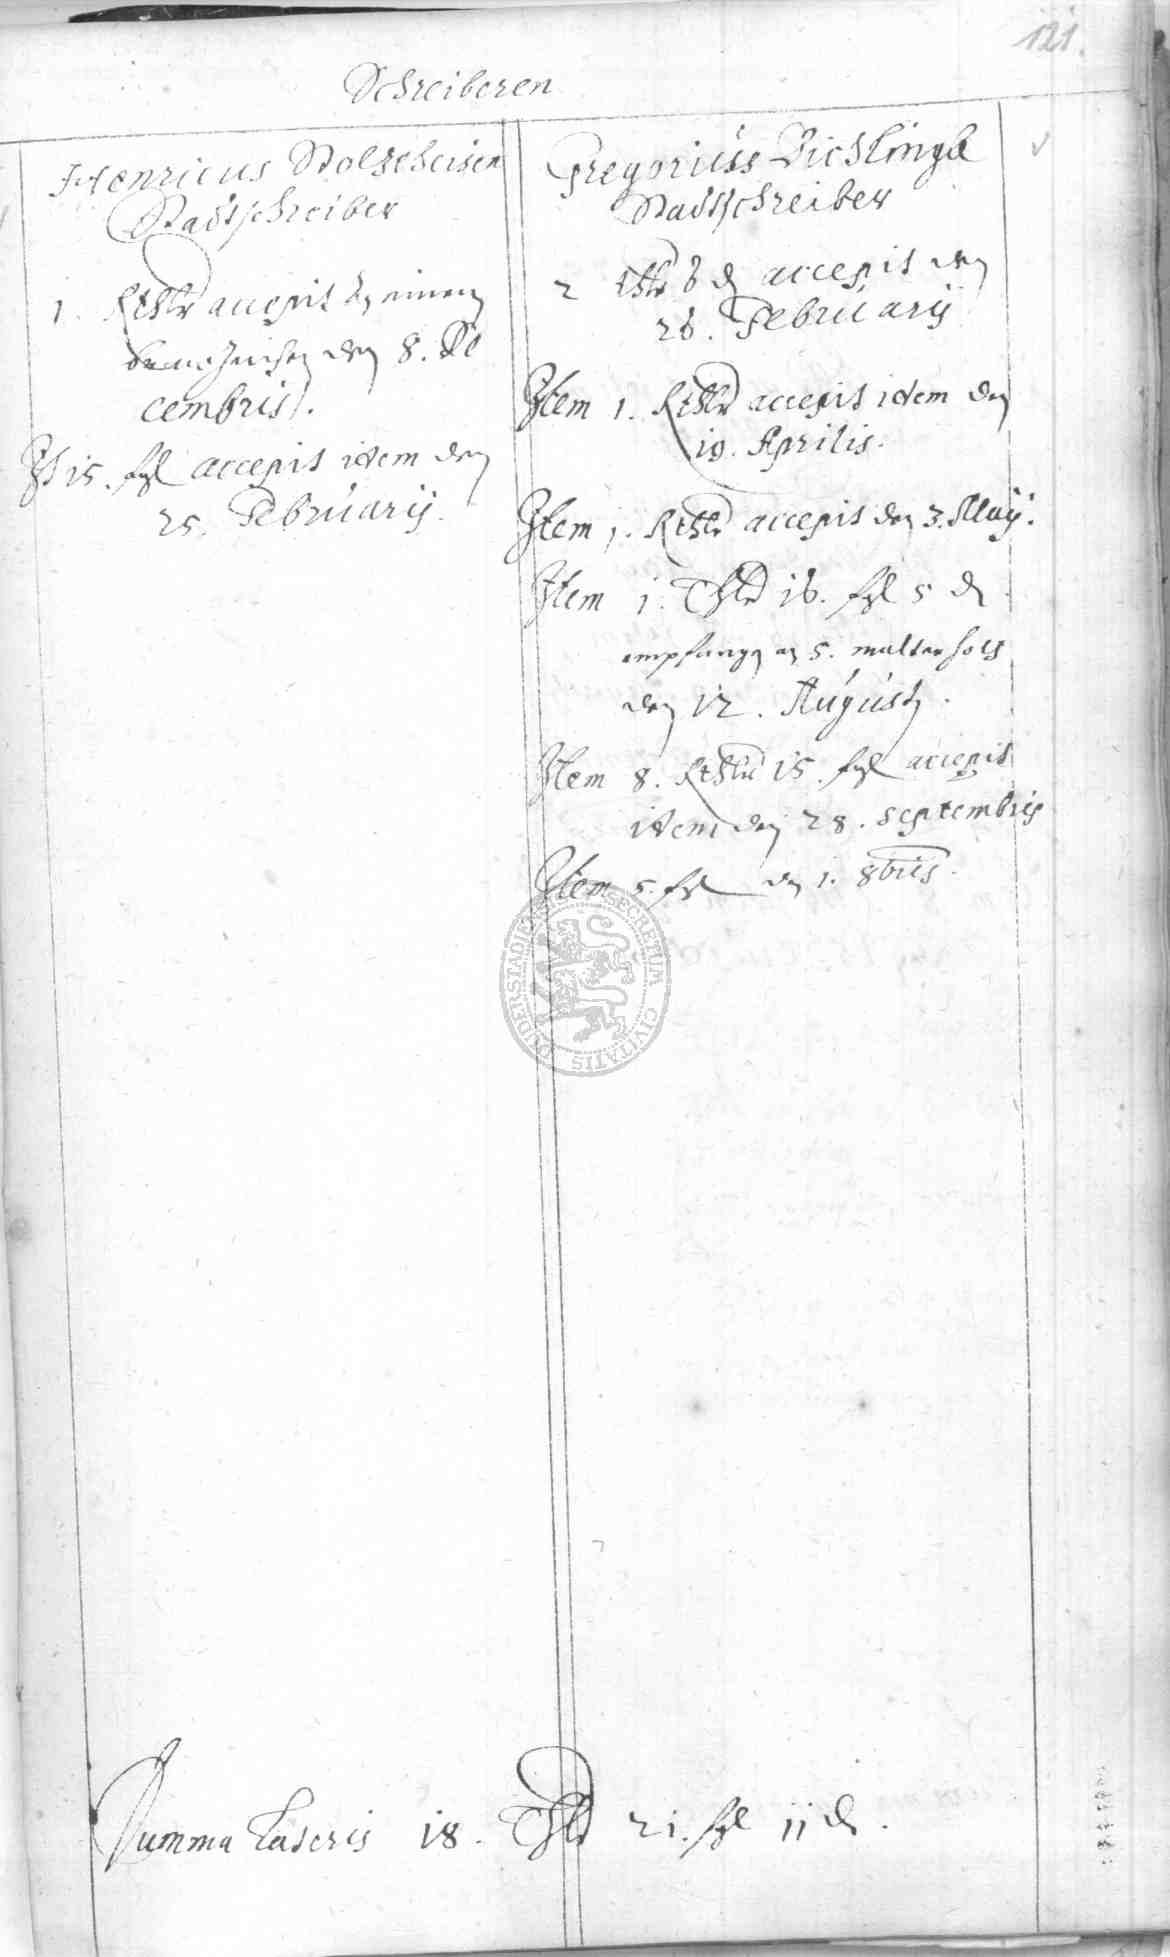 121.
Schreiberen
Henricus Stolzeheisen
Stadtschreiber
1. Rthlr accepit
den 8. De
cembris.
It 15. fgl accepit idem den
25. Februarij.
Gregorius Bichlingk
Stadtschreiber
2 thlr 6 d accepit den
26. Februarij
Item 1. Rthlr accepit idem den
10. Aprilis.
Item 1. Rthlr accepit den 3. Maij.
Item 1. Thlr 16. fgl 5 d
empfangen 5. malter holtz
den 12. Augusti.
Item 8. Rthlr 15. fgl accepit
idem den 28. Septembris
Item 5. fgl den 1. 8bris.
SECRETUM CIVITATIS DUDERSTADIENSIS
Summa Lateris 18. Thlr 21. fgl 11 d.